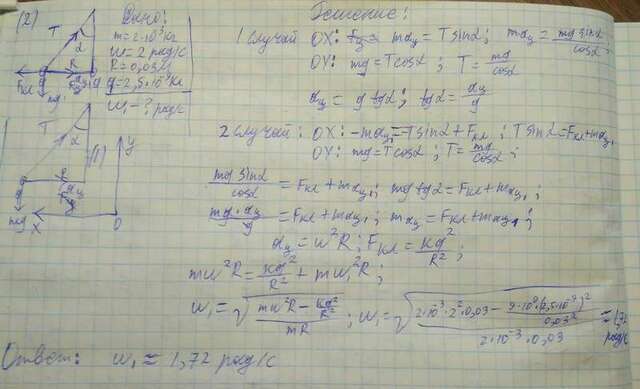 (2)
Дано:
m = 2·10⁻³ кг
ω = 2 рад/с
R = 0,03 м
q = 2,5·10⁻⁹ Кл
ω₁ - ? рад/с
T
α
R
Fкл
mg
(1)
T
α
mg
X
O
y
Решение:
1 случай OX: maц = T sinα; maц = mg sinα / cosα
OY: mg = T cosα; T = mg / cosα
aц = g tgα; tgα = aц / g
2 случай: OX: -maц₁ = -T sinα + Fкл; T sinα = Fкл + maц₁
OY: mg = T cosα; T = mg / cosα;
mg sinα / cosα = Fкл + maц₁; mg tgα = Fкл + maц₁;
mg · aц / g = Fкл + maц₁; maц = Fкл + maц₁;
aц = ω²R; Fкл = kq² / R²;
mω²R = kq² / R² + mω₁²R;
ω₁ = √((mω²R - kq²/R²) / mR); ω₁ = √((2·10⁻³·2²·0,03 - 9·10⁹·(2,5·10⁻⁹)² / 0,03²) / 2·10⁻³·0,03) ≈ 1,72 рад/с
Ответ: ω₁ ≈ 1,72 рад/с